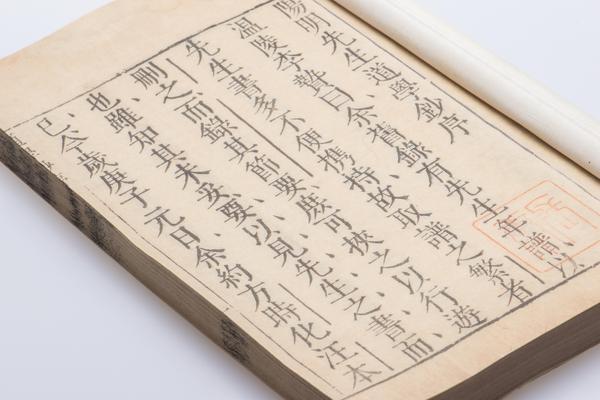 陽明先生道學鈔序
温陵李贄曰、余舊錄有先生年譜、以
先生書多不便携持、故取譜之繁者
刪之、而錄其節要、庶可挾之以行遊
也、雖知其未妥、要以見先生之書而
已、今歲庚子元日、余約方時化汪本